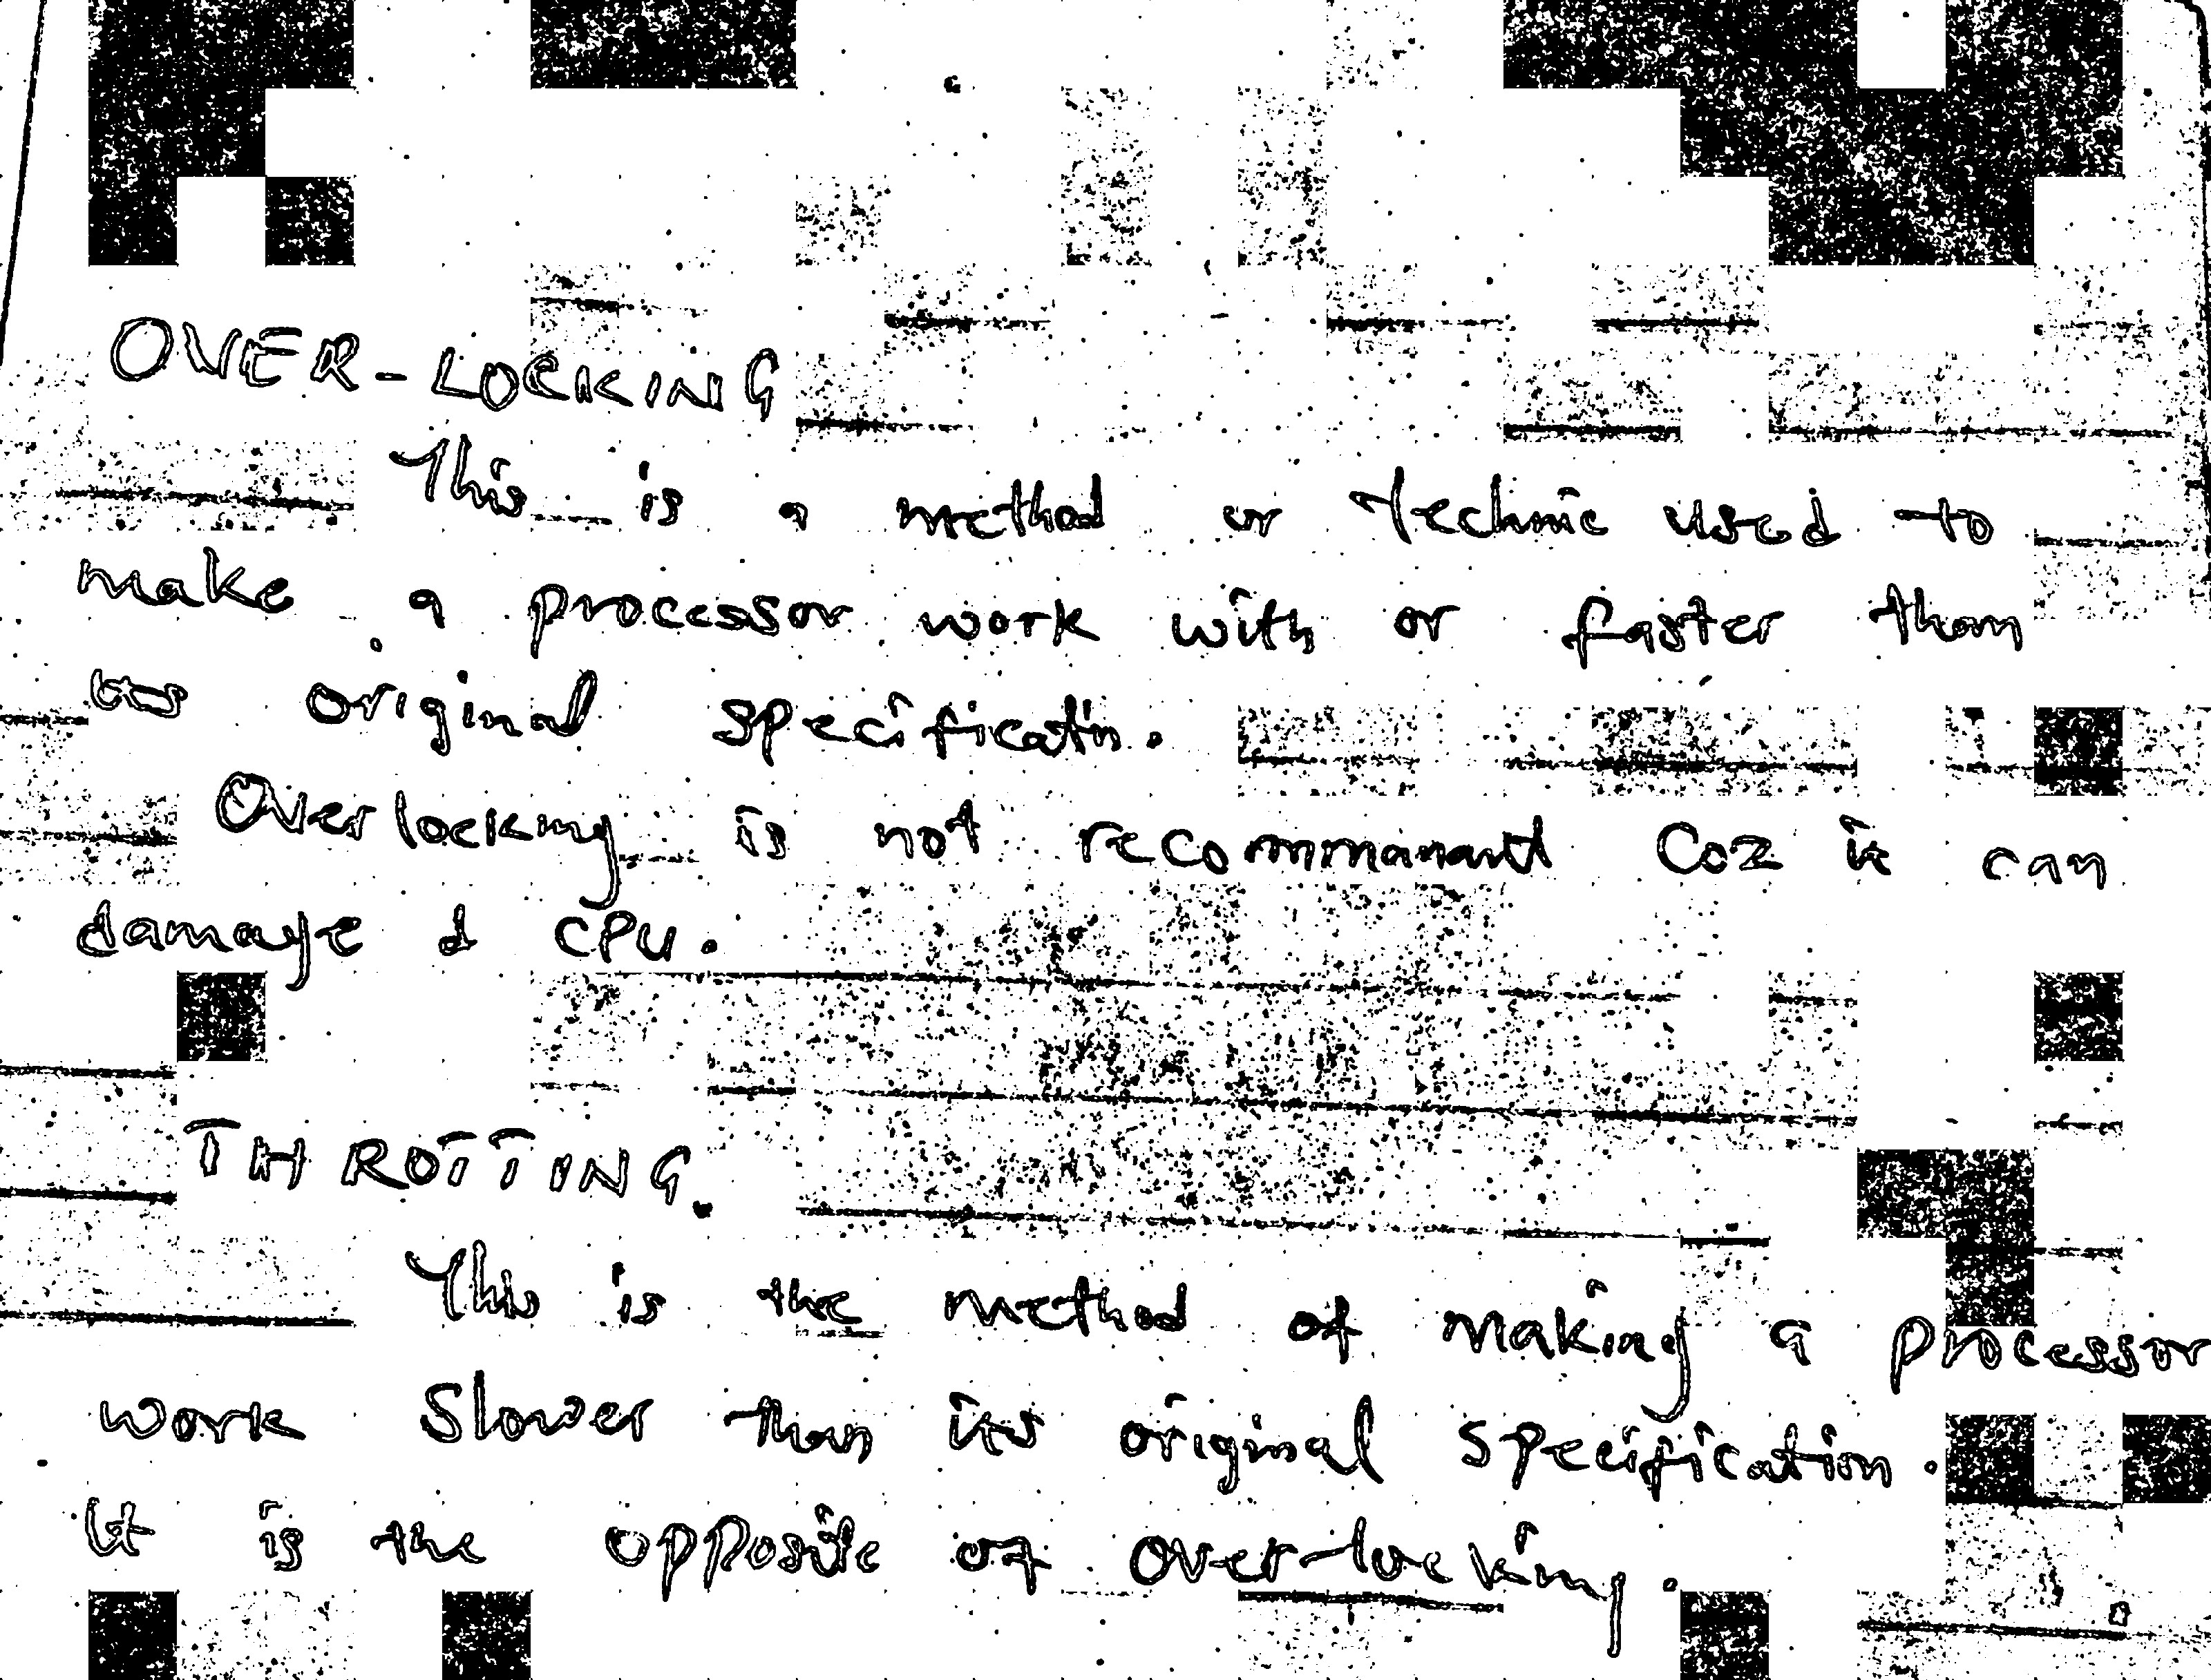 OVER-LOCKING
This is a method or technic used to
make a processor work with or faster than
its original specificatin.
Overlocking is not recommanant Coz it can
damage d CPU.
THROTTING.
This is the method of making a processor
work slower than its original specification.
It is the opposite of over-locking.